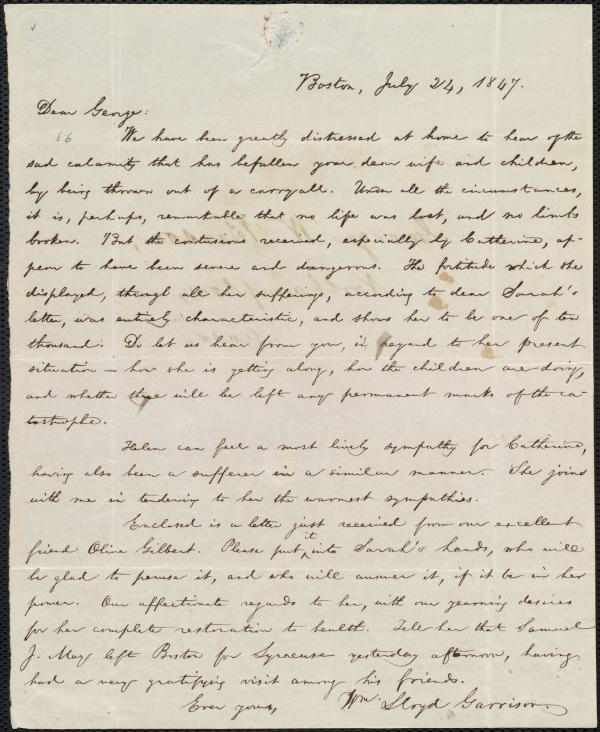 Boston, July 24, 1847.
Dear George:
We have been greatly distressed at home to hear of the
sad calamity that has befallen your dear wife and children,
by being thrown out of a carryall. Under all the circumstances,
it is, perhaps, remarkable that no life was lost, and no limbs
broken. But the contusions received, especially by Catherine, ap-
pear to have been severe and dangerous. The fortitude which she
displayed, through all her sufferings, according to dear Sarah's
letter, was entirely characteristic, and shows her to be one of ten
thousand. Do let us hear from you, in regard to her present
situation — how she is getting along, how the children are doing,
and whether there will be left any permanent marks of the ca-
tastrophe.
Helen can feel a most lively sympathy for Catherine,
having also been a sufferer in a similar manner. She joins
with me in tendering to her the warmest sympathies.
Enclosed is a letter just received from our excellent
friend Olive Gilbert. Please put it into Sarah's hands, who will
be glad to peruse it, and who will answer it, if it be in her
power. Our affectionate regards to her, with our yearning desires
for her complete restoration to health. Tell her that Samuel
J. May left Boston for Syracuse yesterday afternoon, having
had a very gratifying visit among his friends.
Ever yours, Wm. Lloyd Garrison.